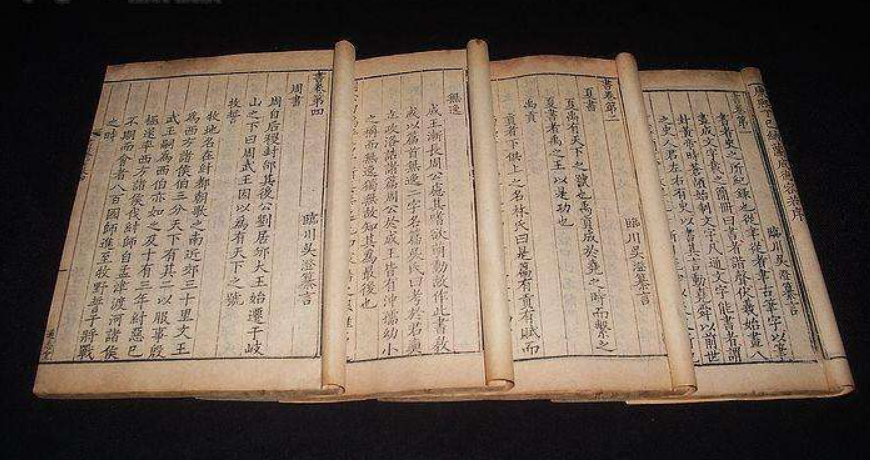 康熙丁巳納蘭成德容若序
書卷第一
臨川吳澄纂言
書者史之所紀錄也從聿從者聿古筆字以筆
畫成文字載之簡冊曰書者諧聲伏羲始畫八
卦黃帝時蒼頡始制文字凡通文字能書者謂
之史人君左右有史以書其言動堯舜以前世
書卷第二
臨川吳澄纂言
夏書
夏禹有天下之號也禹貢成於堯之時而繫之
夏書者禹之王以是功也
禹貢
貢者下供上之名林氏曰是篇有貢有賦而
無逸
成王漸長周公慮其嗜欲萌動故作此書教
成以篇首無逸二字名篇吳氏曰考於君奭
立政洛誥諸篇周公於成王皆有沖孺幼小
之稱而無逸獨無故知其為最後也
書卷第四
臨川吳澄纂言
周書
周自后稷封邰其後公劉居邠大王始遷于岐
山之下曰周武王因以為有天下之號
牧誓
牧地名在紂都朝歌之南近郊三十里文王
為西方諸侯伯三分天下有其二以服事殷
武王嗣為西伯亦如之及十有三年紂惡已
極遂率西方諸侯伐紂師自孟津渡河諸侯
不期而會者八百國師進至牧野誓于將戰
之時